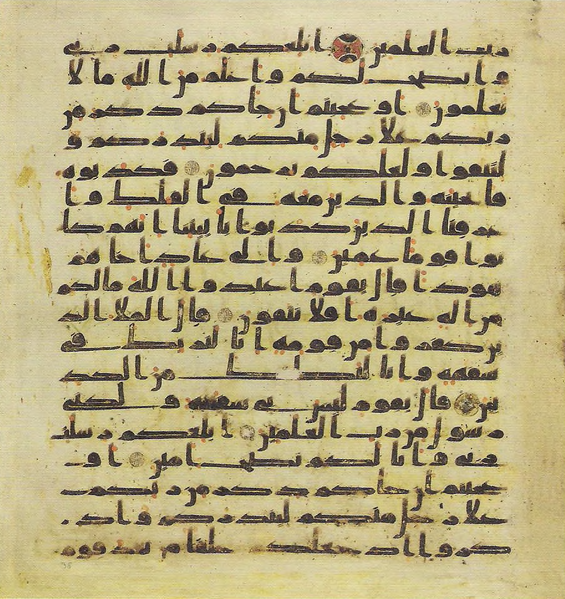 رب العلمين ابلغكم رسلت ربي
وانصح لكم واعلم من الله ما لا
تعلمون او عجبتم ان جاكم ذكر من
ربكم علا رجل منكم لينذركم و
لتتقوا ولعلكم ترحمون فكذبوه
فانجينه والذين معه في الفلك وا
غرقنا الذين كذبوا بايتنا انهم كا
نوا قوما عمين والى عاد اخاهم
هودا قال يقوم اعبدوا الله ما لكم
من اله غيره افلا تتقون قال الملا الذ
ين كفروا من قومه انا لنريك في
سفهة وانا لنظنك من الكذ
بين قال يقوم ليس بي سفهة ولكني
رسول من رب العلمين ابلغكم رسلت
ربي وانا لكم ناصح امين او
عجبتم ان جاكم ذكر من ربكم
علا رجل منكم لينذركم واذ
كروا اذ جعلكم خلفا من بعد قوم